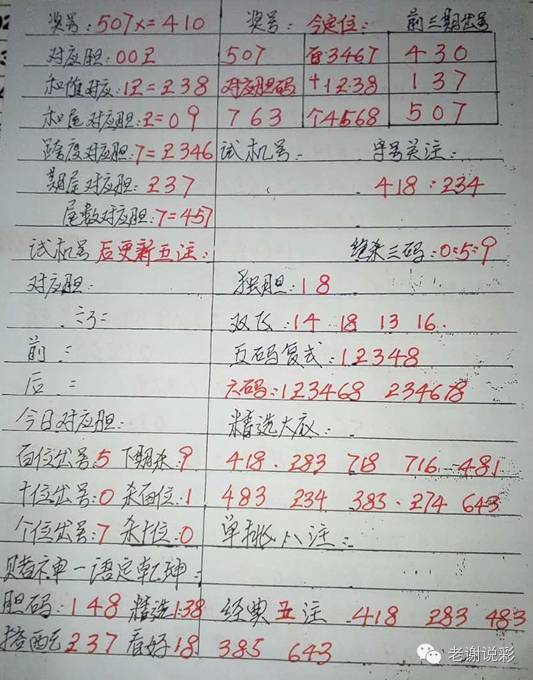 奖号:507x=410 奖号: 今定位: 前三期出号
对应胆:002 507 百3467 430
和值对应:12=238 对应胆码 十1238 137
和尾对应胆:2=09 763 个4568 507
跨度对应胆:7=2346 试机号: 字号关注:
期尾对应胆:237 418:234
尾数对应胆:7=457
试机号后更新五注: 绝杀三码:0:5:9
对应胆: 独胆:18
双飞:14 18 13 16
前 = 五码复式:12348
后 = 六码:123468 234678
今日对应胆: 精选大底:
百位出号:5 下期杀:9 418. 283 718 716 481
十位出号:0 杀百位:1 483 234 383. 274 643
个位出号:7 杀十位:0 单挑八注:
赌神一语定乾坤:
胆码:148 精选138 经典五注 418 283 483
搭配237 看好18 385 643
老谢说彩